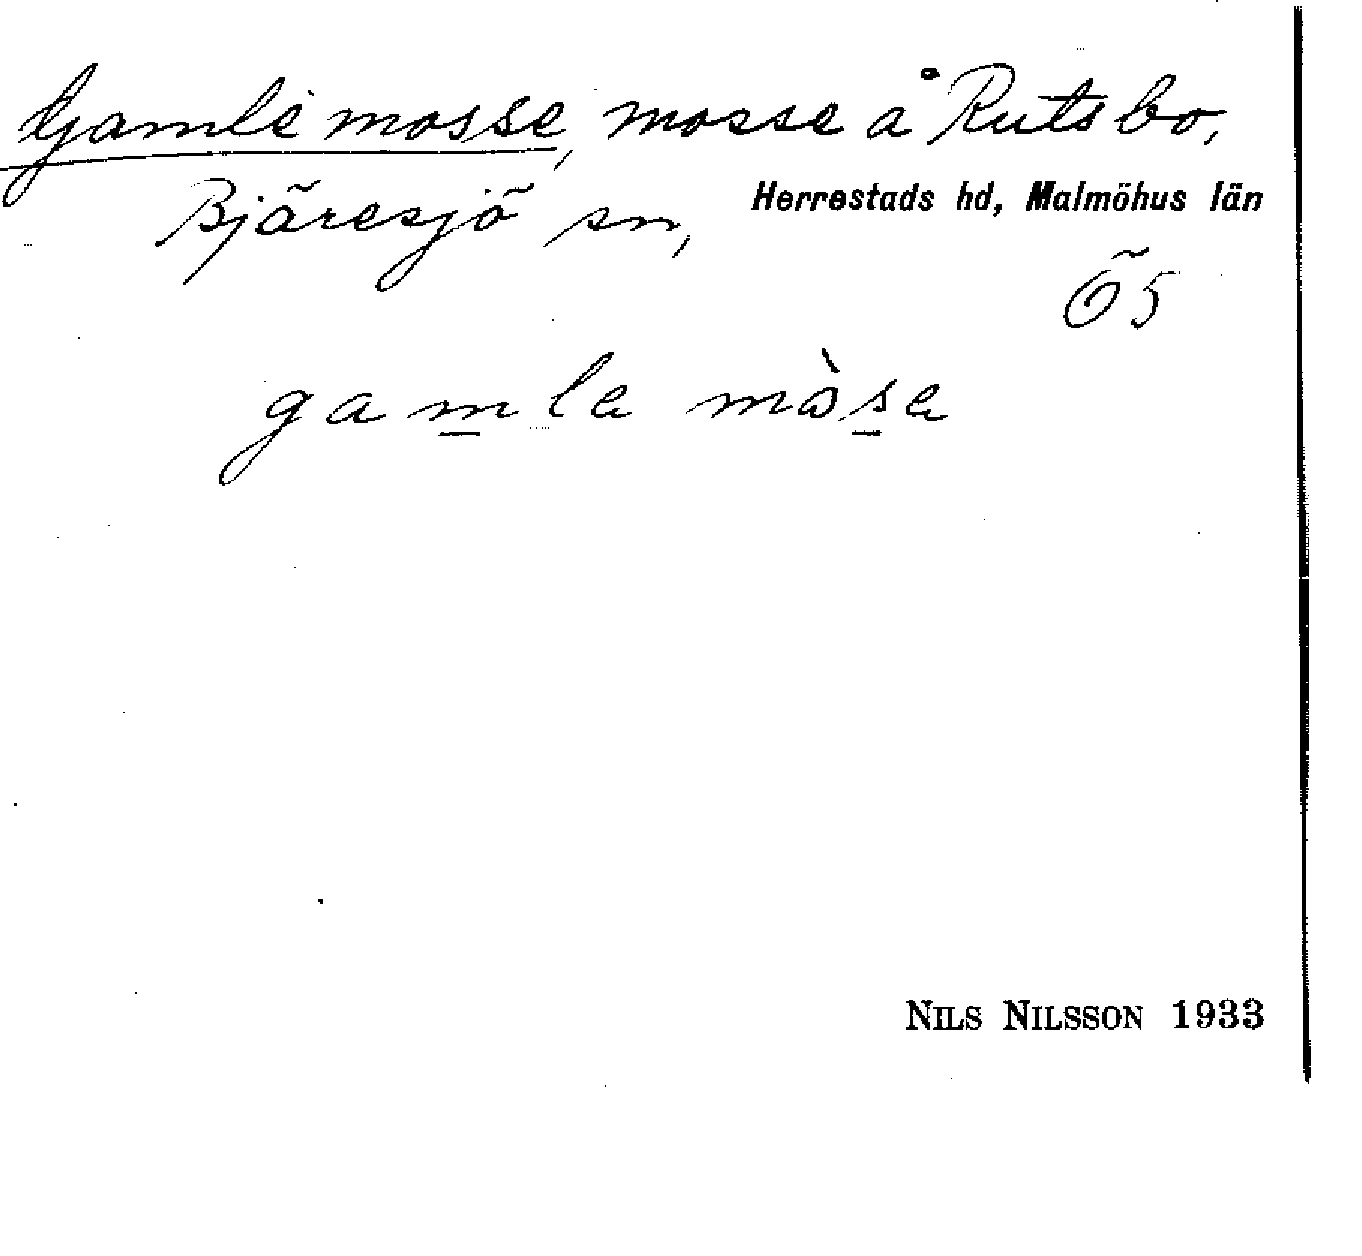 Gamle mosse, mosse å Rutsbo,
Bjäresjö sn, Herrestads hd, Malmöhus län
Ö5
gamla mòsa
NILS NILSSON 1933